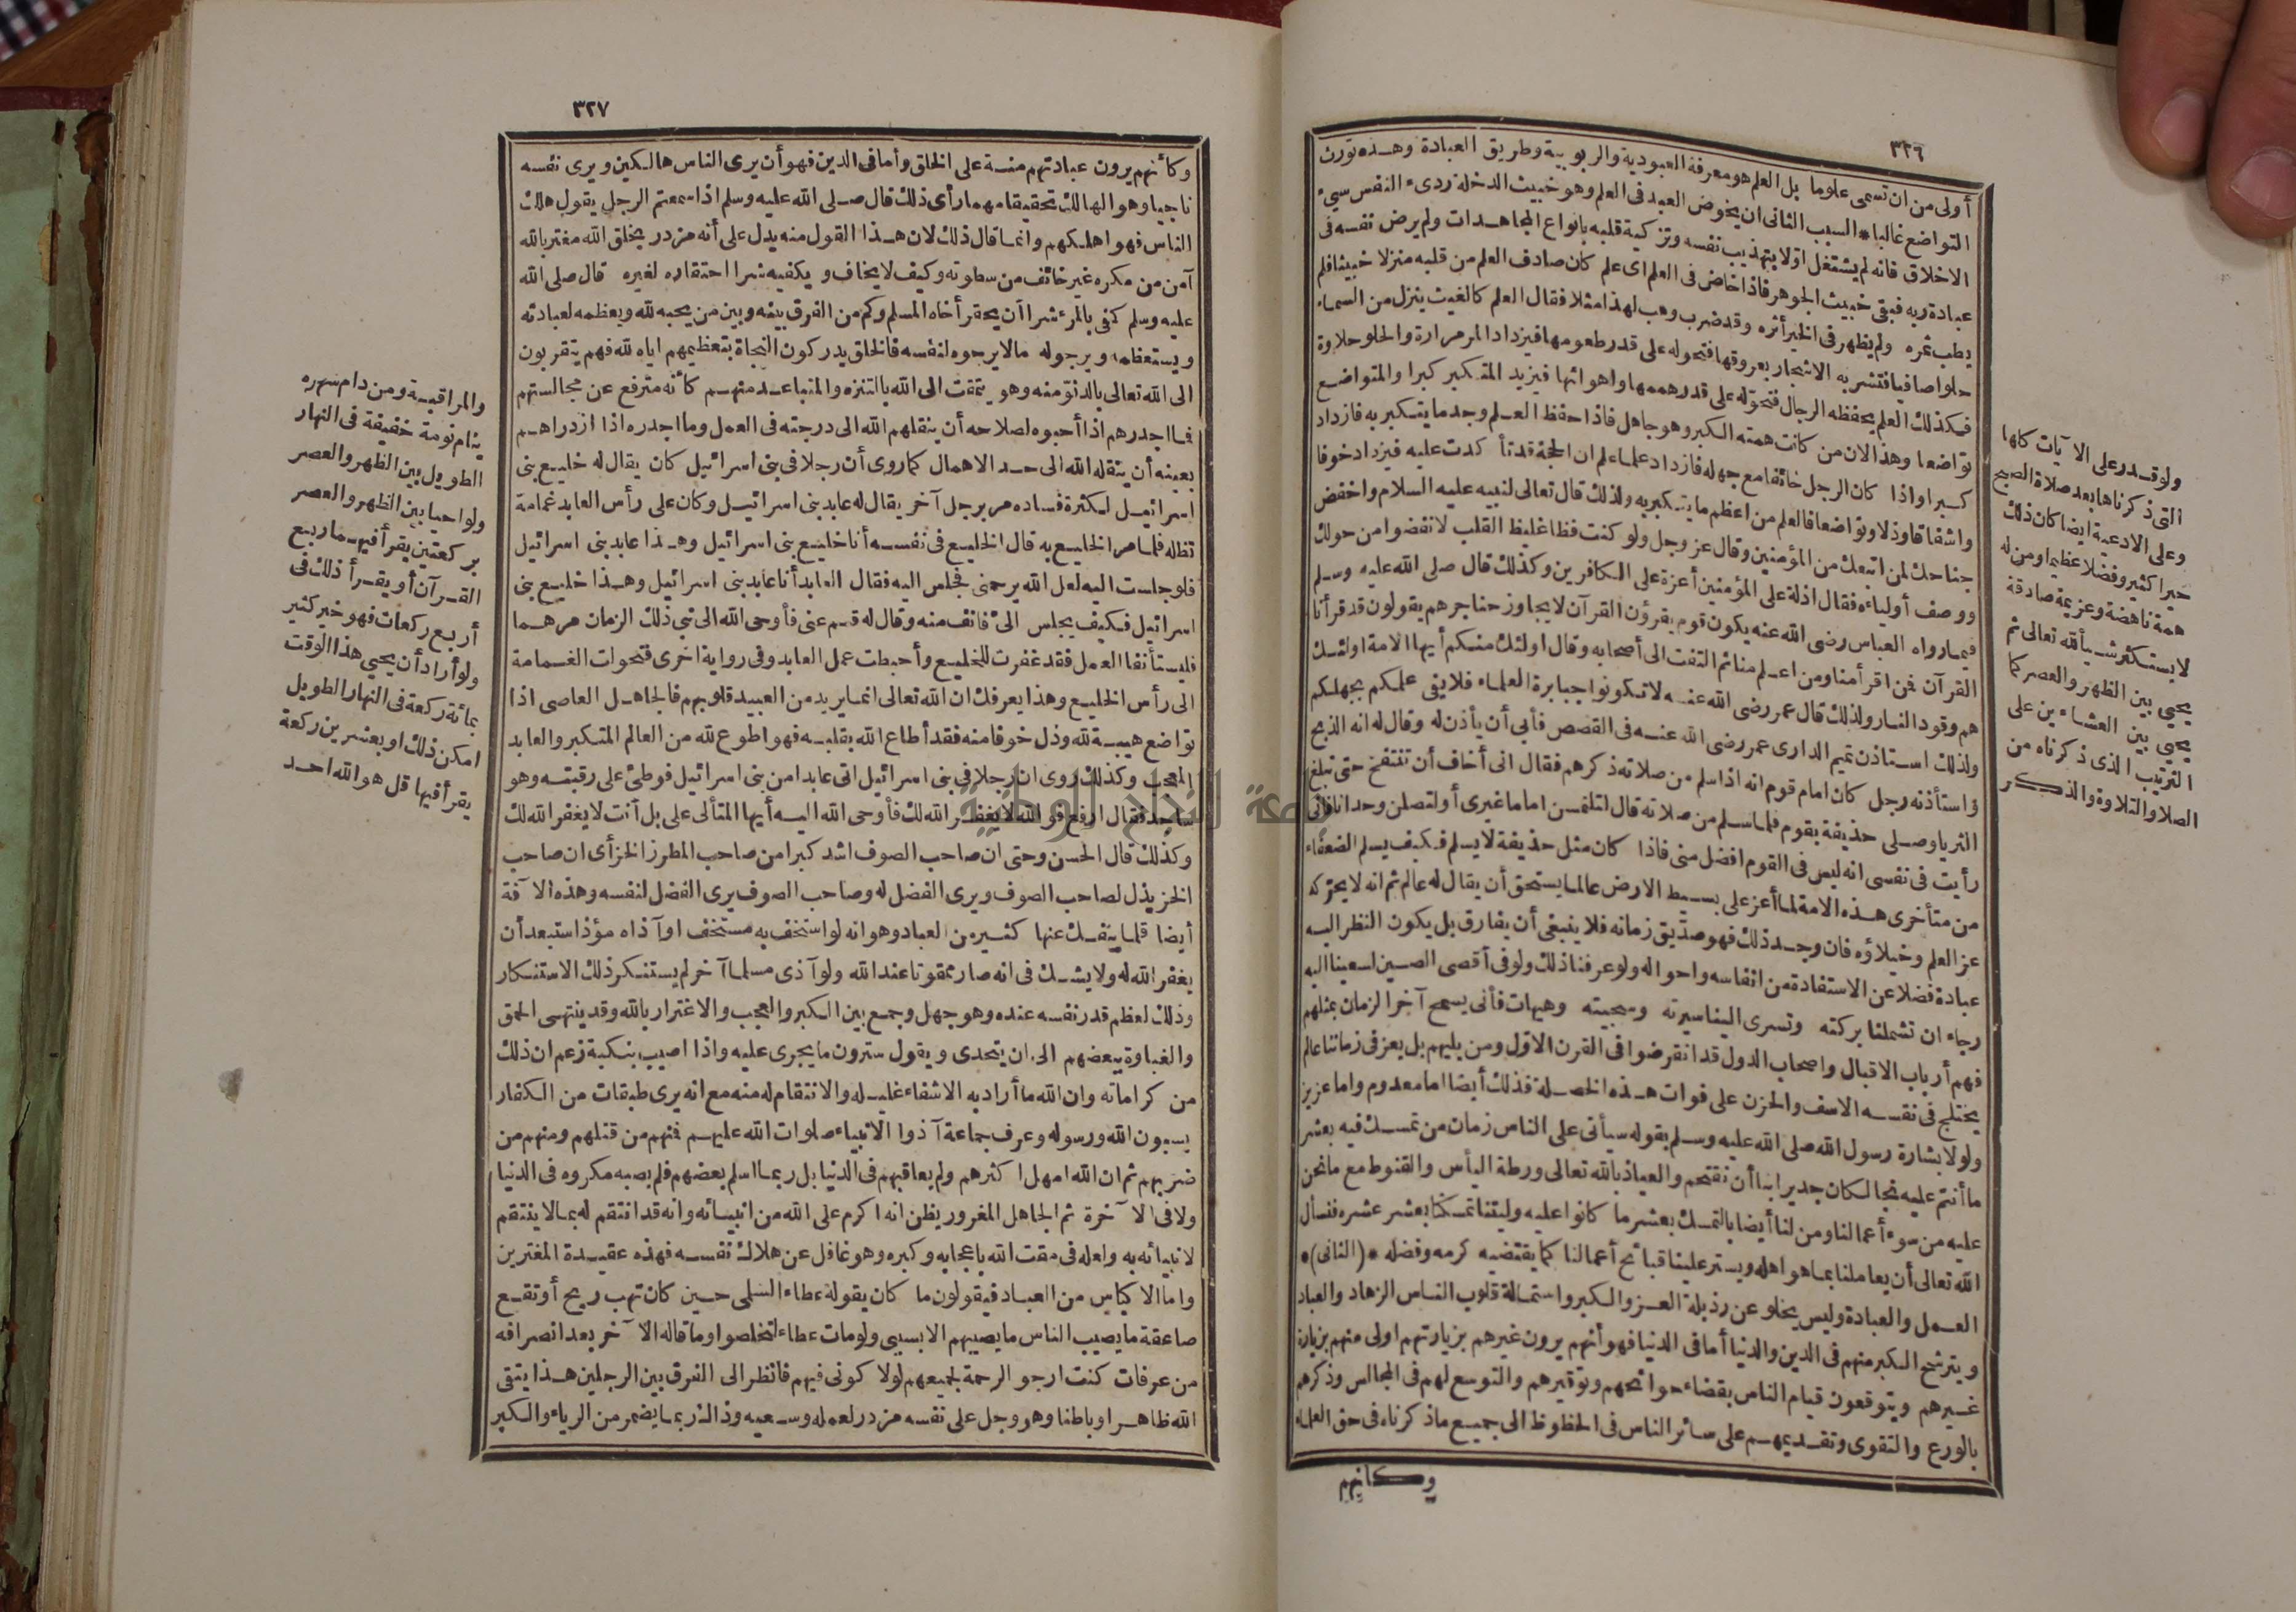 ٣٢٦
أولى من ان تسمى علوما بل العلم هو معرفة العبودية والربوبية وطريق العبادة وهذه تورث
التواضع غالبا * السبب الثانى ان يخوض العبد فى العلم وهو خبيث الدخلة ردىء النفس سيئ
الاخلاق فانه لم يشتغل اولا بتهذيب نفسه وتزكية قلبه بانواع المجاهدات ولم يرض نفسه فى
عبادة ربه فبقى خبيث الجوهر فاذا خاض فى العلم اى علم كان صادف العلم من قلبه منزلا خبيثا فلم
يطب ثمره ولم يظهر فى الخير أثره وقد ضرب وهب لهذا مثلا فقال العلم كالغيث ينزل من السماء
حلوا صافيا فتشربه الاشجار بعروقها فتحوله على قدر طعومها فيزداد المر مرارة والحلو حلاوة
فكذلك العلم يحفظه الرجال فتحوّله على قدر هممها واهوائها فيزيد المتكبر كبرا والمتواضع
تواضعا وهذا لان من كانت همته الكبر وهو جاهل فاذا حفظ العلم وجد ما يتكبر به فازداد
كبرا واذا كان الرجل خائفا مع جهله فازداد علما علم ان الحجة قد تأكدت عليه فيزداد خوفا
واشفاقا وذلا وتواضعا فالعلم من اعظم ما يتكبر به ولذلك قال تعالى لنبيه عليه السلام واخفض
جناحك لمن اتبعك من المؤمنين وقال عز وجل ولو كنت فظا غليظ القلب لانفضوا من حولك
ووصف أولياءه فقال اذلة على المؤمنين أعزة على الكافرين وكذلك قال صلى الله عليه وسلم
فيما رواه العباس رضى الله عنه يكون قوم يقرؤن القرآن لا يجاوز حناجرهم يقولون قد قرأنا
القرآن فمن اقرأ منا ومن اعلم منا ثم التفت الى أصحابه وقال اولئك منكم أيها الامة اولئك
هم وقود النار ولذلك قال عمر رضى الله عنه لا تكونوا جبابرة العلماء فلا يفى علمكم بجهلكم
ولذلك استاذن تميم الدارى عمر رضى الله عنه فى القصص فأبى أن يأذن له وقال له انه الذبح
واستأذنه رجل كان امام قوم انه اذا سلم من صلاته ذكرهم فقال انى أخاف أن تنتفخ حتى تبلغ
الثريا وصلى حذيفة بقوم فلما سلم من صلاته قال لتلتمسن اماما غيرى أو لتصلن وحدانا فانى
رأيت فى نفسى انه ليس فى القوم افضل منى فاذا كان مثل حذيفة لا يسلم فكيف يسلم الضعفاء
من متأخرى هذه الامة فما أعز على بسيط الارض عالما يستحق أن يقال له عالم ثم انه لا يحركه
عز العلم وخيلاؤه فان وجد ذلك فهو صدّيق زمانه فلا ينبغى أن يفارق بل يكون النظر اليه
عبادة فضلا عن الاستفادة من انفاسه واحواله ولو عرفنا ذلك ولو فى أقصى الصين لسعينا اليه
رجاء ان تشملنا بركته وتسرى الينا سيرته وسجيته وهيهات فأنى يسمح آخر الزمان بمثلهم
فهم أرباب الاقبال واصحاب الدول قد انقرضوا فى القرن الاوّل ومن يليهم بل يعز فى زماننا عالم
يختلج فى نفسه الاسف والحزن على فوات هذه الخصلة فذلك أيضا اما معدوم واما عزيز
ولولا بشارة رسول الله صلى الله عليه وسلم بقوله سيأتى على الناس زمان من تمسك فيه بعشر
ما أنتم عليه نجا لكان جديرا بنا أن نقتحم والعياذ بالله تعالى ورطة اليأس والقنوط مع ما نحن
عليه من سوء أعمالنا ومن لنا أيضا بالتمسك بعشر ما كانوا عليه وليتنا تمسكنا بعشر عشره فنسأل
الله تعالى أن يعاملنا بما هو اهله ويستر علينا قبائح أعمالنا كما يقتضيه كرمه وفضله * (الثانى) *
العمل والعبادة وليس يخلو عن رذيلة العز والكبر واستمالة قلوب الناس الزهاد والعباد
ويترشح الكبر منهم فى الدين والدنيا أما فى الدنيا فهو أنهم يرون غيرهم بزيارتهم اولى منهم بزيارة
غيرهم ويتوقعون قيام الناس بقضاء حوائجهم وتوقيرهم والتوسع لهم فى المجالس وذكرهم
بالورع والتقوى وتقديمهم على سائر الناس فى الحظوظ الى جميع ما ذكرناه فى حق العلماء
وكانهم
ولو قدر على الآيات كلها
التى ذكرناها بعد صلاة الصبح
وعلى الادعية ايضا كان ذلك
خيرا كثيرا وفضلا عظيما ومن له
همة ناهضة وعزيمة صادقة
لا يستكثر شيأ لله تعالى ثم
يحيى بين الظهر والعصر كما
يحيى بين العشاءين على
الترتيب الذى ذكرناه من
الصلا والتلاوة والذكر
٣٢٧
وكأنهم يرون عبادتهم منة على الخلق وأما فى الدين فهو أن يرى الناس هالكين ويرى نفسه
ناجيا وهو الهالك تحقيقا مهما رأى ذلك قال صلى الله عليه وسلم اذا سمعتم الرجل يقول هلك
الناس فهو اهلكهم وانما قال ذلك لان هذا القول منه يدل على أنه مزدر بخلق الله مغتر بالله
آمن من مكره غير خائف من سطوته وكيف لا يخاف ويكفيه شرا احتقاره لغيره قال صلى الله
عليه وسلم كفى بالمرء شرا أن يحقر أخاه المسلم وكم من الفرق بينه وبين من يحبه لله ويعظمه لعبادته
ويستعظمه ويرجو له مالا يرجوه لنفسه فالخلق يدركون النجاة بتعظيمهم اياه لله فهم يتقربون
الى الله تعالى بالدنوّ منه وهو يتمقت الى الله بالتنزه والتباعد منهم كأنه مترفع عن مجالستهم
فما اجدرهم اذا أحبوه لصلاحه أن ينقلهم الله الى درجته فى العمل وما اجدره اذا ازدراهم
بعينه أن ينقله الله الى حد الاهمال كما روى أن رجلا فى بنى اسرائيل كان يقال له خليع بنى
اسرائيل لكثرة فساده مر برجل آخر يقال له عابد بنى اسرائيل وكان على رأس العابد غمامة
تظله فلما مر الخليع به قال الخليع فى نفسه أنا خليع بنى اسرائيل وهذا عابد بنى اسرائيل
فلو جلست اليه لعل الله يرحمنى فجلس اليه فقال العابد أنا عابد بنى اسرائيل وهذا خليع بنى
اسرائيل فكيف يجلس الىّ فانف منه وقال له قم عنى فأوحى الله الى نبى ذلك الزمان مرهما
فليستأنفا العمل فقد غفرت للخليع وأحبطت عمل العابد وفى رواية اخرى فتحولت الغمامة
الى رأس الخليع وهذا يعرفك ان الله تعالى انما يريد من العبيد قلوبهم فالجاهل العاصى اذا
تواضع هيبة لله وذل خوفا منه فقد أطاع الله بقلبه فهو اطوع لله من العالم المتكبر والعابد
المعجب وكذلك روى ان رجلا فى بنى اسرائيل اتى عابدا من بنى اسرائيل فوطئ على رقبته وهو
ساجد فقال ارفع فو الله لا يغفر الله لك فأوحى الله اليه أيها المتألى على بل أنت لا يغفر الله لك
وكذلك قال الحسن وحتى ان صاحب الصوف اشد كبرا من صاحب المطرز الخز أى ان صاحب
الخز يذل لصاحب الصوف ويرى الفضل له وصاحب الصوف يرى الفضل لنفسه وهذه الآفة
أيضا قلما ينفك عنها كثير من العباد وهو انه لو استخف به مستخف او آذاه مؤذ استبعد أن
يغفر الله له ولا يشك فى انه صار ممقوتا عند الله ولو آذى مسلما آخر لم يستنكر ذلك الاستنكار
وذلك لعظم قدر نفسه عنده وهو جهل وجمع بين الكبر والعجب والاغترار بالله وقد ينتهى الحمق
والغباوة ببعضهم الى ان يتحدى ويقول سترون ما يجرى عليه واذا اصيب بنكبة زعم ان ذلك
من كراماته وان الله ما أراد به الاشفاء غليله والانتقام له منه مع انه يرى طبقات من الكفار
يسبون الله ورسوله وعرف جماعة آذوا الانبياء صلوات الله عليهم فمنهم من قتلهم ومنهم من
ضربهم ثم ان الله امهل اكثرهم ولم يعاقبهم فى الدنيا بل ربما اسلم بعضهم فلم يصبه مكروه فى الدنيا
ولا فى الآخرة ثم الجاهل المغرور يظن انه اكرم على الله من انبيائه وانه قد انتقم له بما لا ينتقم
لانبيائه به ولعله فى مقت الله باعجابه وكبره وهو غافل عن هلاك نفسه فهذه عقيدة المغترين
واما الاكياس من العباد فيقولون ما كان يقوله عطاء السلمى حين كان تهب ريح أو تقع
صاعقة ما يصيب الناس ما يصيبهم الا بسببى ولو مات عطاء لتخلصوا وما قاله الآخر بعد انصرافه
من عرفات كنت ارجو الرحمة لجميعهم لولا كونى فيهم فانظر الى الفرق بين الرجلين هذا يتقى
الله ظاهرا وباطنا وهو وجل على نفسه مزدر لعمله وسعيه وذاك ربما يضمر من الرياء والكبر
والمراقبة ومن دام سهره
ينام نومة خفيفة فى النهار
الطويل بين الظهر والعصر
ولو احيا بين الظهر والعصر
بركعتين يقرأ فيهما ربع
القرآن أو يقرأ ذلك فى
أربع ركعات فهو خير كثير
ولو أراد أن يحيى هذا الوقت
بمائة ركعة فى النهار الطويل
امكن ذلك او بعشرين ركعة
يقرأ فيها قل هو الله احد
جامعة النجاح الوطنية